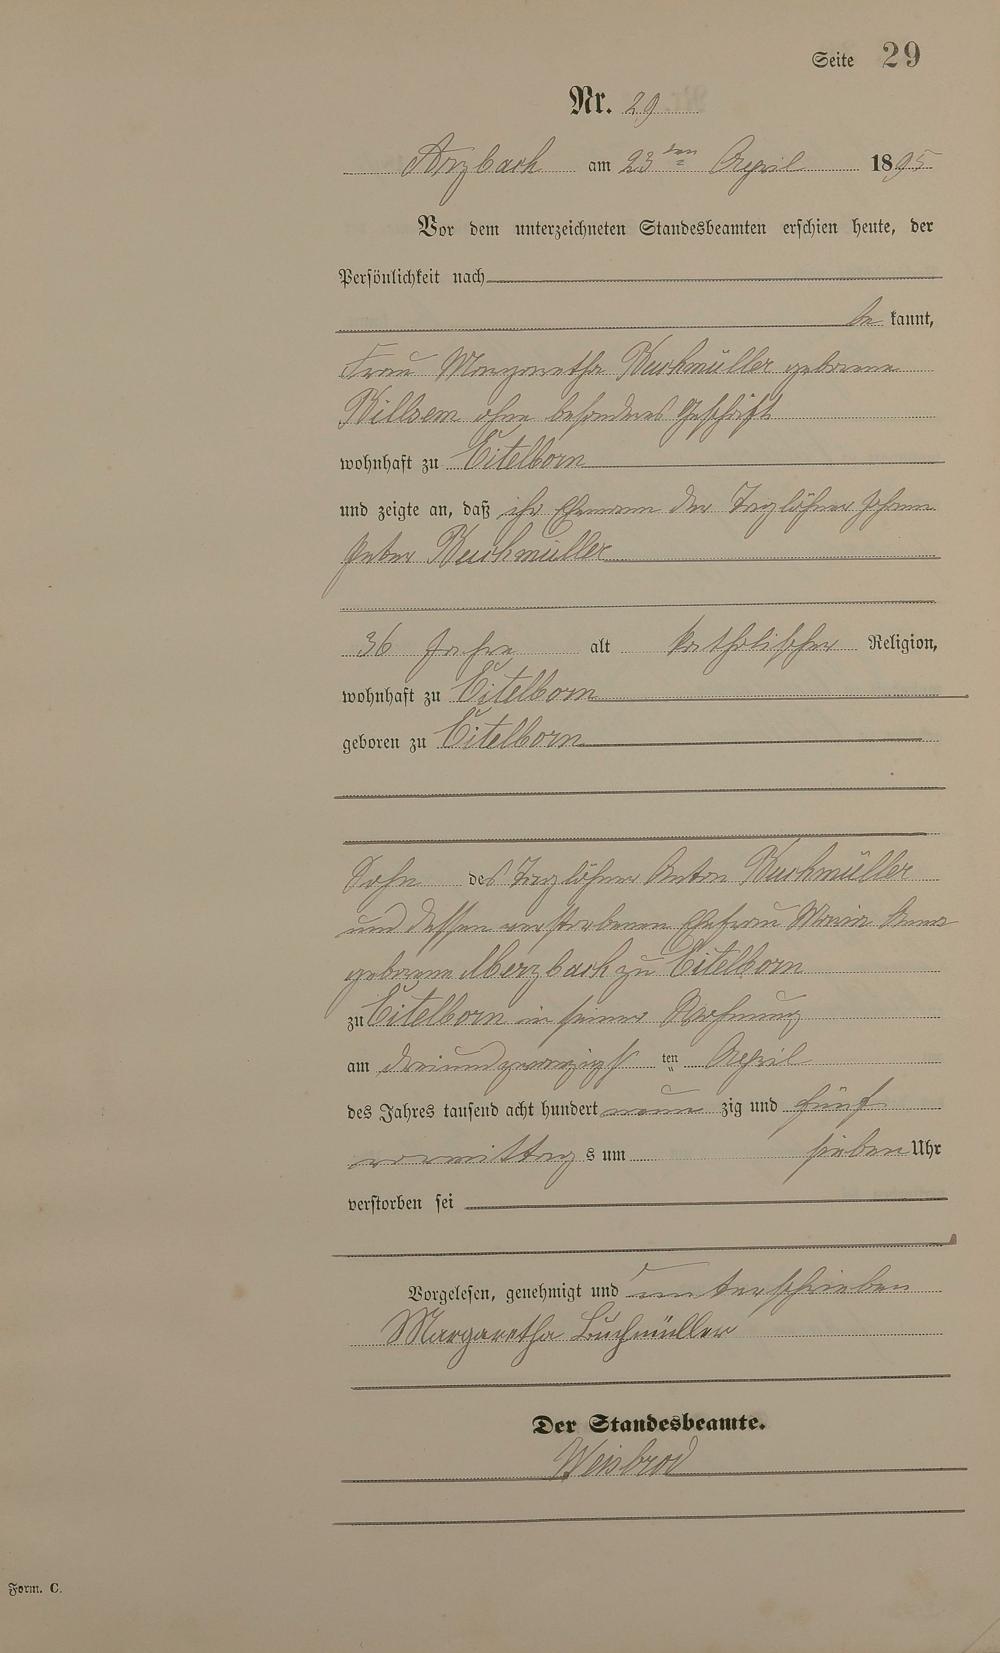 Seite 29
Nr. 29
Arzbach am 23ten April 1895
Vor dem unterzeichneten Standesbeamten erschien heute, der
Persönlichkeit nach
be kannt,
Frau Margaretha Buchmüller geborene
Billsem ohne besonderes Geschäft
wohnhaft zu Eitelborn
und zeigte an, daß ihr Ehemann der Taglöhner Johann
Peter Buchmüller
36 Jahre alt katholischer Religion,
wohnhaft zu Eitelborn
geboren zu Eitelborn
Sohn des Taglöhner Anton Buchmüller
und dessen verstorbenen Ehefrau Maria Anna
geborene Merzbach zu Eitelborn
zu Eitelborn in seiner Wohnung
am dreiundzwanzigsten April
des Jahres tausend acht hundert neun zig und fünf
vormittags um sieben Uhr
verstorben sei
Vorgelesen, genehmigt und unterschrieben
Margaretha Buchmüller
Der Standesbeamte.
Weisbrod
Form. C.